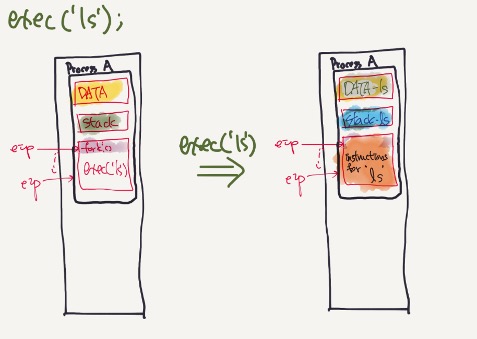 exec('ls');
Process A
DATA
stack
fork()
exec('ls')
eip
eip
exec('ls')
Process A
DATA-ls
stack-ls
instructions
for 'ls'
eip
eip